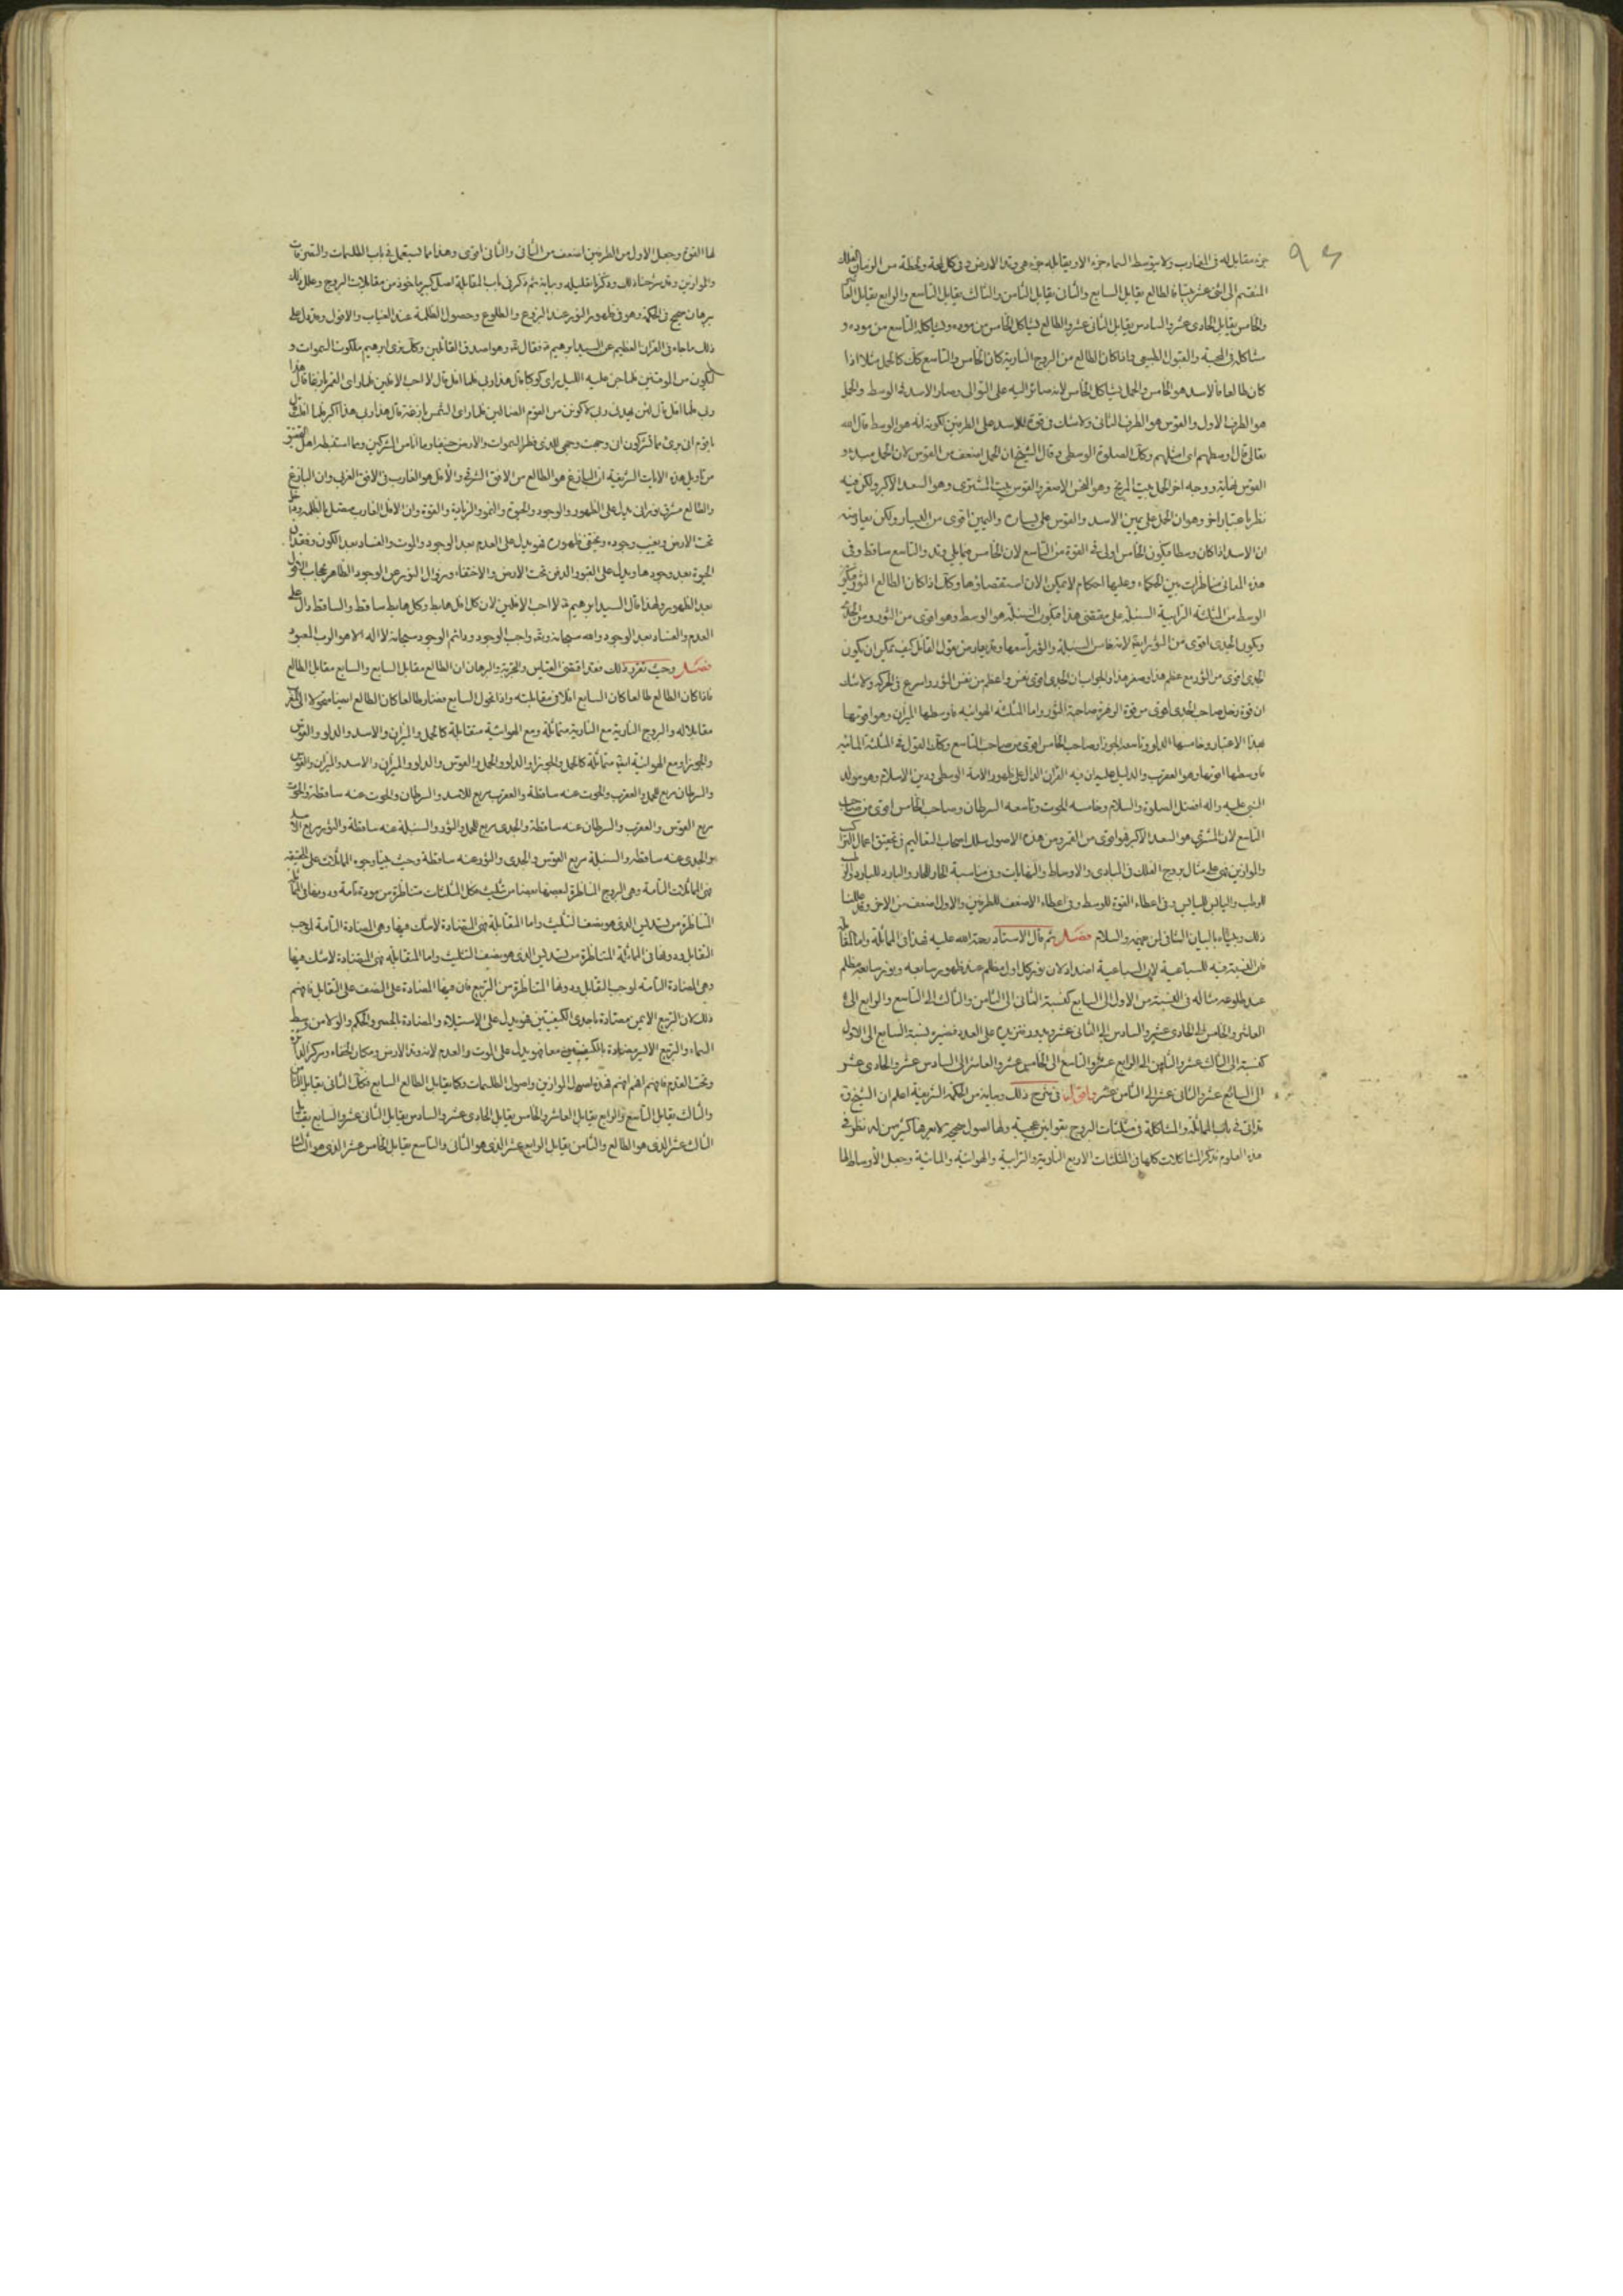 ٩٤
جزء مقابل له في المغارب ولا يتوسط السماء جزء الا ويقابله جزء هو وتد الارض وفي كل لمحة ولحظة من الزمان الفلك
المنقسم الى اثنى عشر بيتا فالطالع يقابل السابع والثاني يقابل الثامن والثالث يقابل التاسع والرابع يقابل العاشر
والخامس يقابل الحادى عشر والسادس يقابل الثانى عشر والطالع يشاكل الخامس من موده ويشاكله التاسع من موده و
مشاكله في المحبة والقبول الطبيعي واذا كان الطالع من البروج النارية كان الخامس والتاسع كذلك كالحمل مثلا اذا
كان طالعا فالاسد هو الخامس والحمل يشاكل الخامس لانه صائر اليه على التوالى وصار الاسد في الوسط والحمل
هو الطرف الاول والقوس هو الطرف الثانى ولا شك في قوة الاسد على الطرفين لكونه انه هو الوسط قال الله
تعالى قال اوسطهم اى امثلهم وكذلك الصلوة الوسطى وقال الشيخ ان الحمل اضعف من القوس لان الحمل مبدء و
القوس نهاية ووجه اخر الحمل بيت المريخ وهو النحس الاصغر والقوس بيت المشترى وهو السعد الاكبر ولكن فيه
نظر باعتبار اخر وهو ان الحمل على يمين الاسد والقوس على يساره واليمين اقوى من اليسار ولكن يعارضه
ان الاسد اذا كان وسطا فيكون الخامس اولى في القوة من التاسع لان الخامس مما يلى وتد والتاسع ساقط وفى
هذه المعانى مناظرات بين الحكماء وعليها احكام لا يمكن الان استقصاؤها وكذلك اذا كان الطالع الثور فيكون
الوسط من المثلثة الترابية السنبلة على مقتضى هذا فتكون السنبلة هو الوسط وهو اقوى من الثور ومن الجدى
ويكون الجدى اقوى من الثور ايضا لانه خامس السنبلة والثور تاسعها وقد يعارض بقول القائل كيف يمكن ان يكون
الجدى اقوى من الثور مع عظم هذا وصغر هذا والجواب ان الجدى اقوى نفس واعظم من نفس الثور واسرع في الحركة ولا شك
ان قوة زحل صاحب الجدى اقوى من قوة الزهرة صاحبة الثور واما المثلثة الهوائية فاوسطها الميزان وهو اقوتها
بهذا الاعتبار وخامسها الدلو وتاسعه الجوزا وصاحب الخامس اقوى من صاحب التاسع وكذلك القول في المثلثة المائيه
فاوسطها اقوتها وهو العقرب والدليل عليه ان فيه القران الدال على ظهور الامة الوسطى ودين الاسلام وهو مولد
النبى عليه واله افضل الصلوة والسلام وخامسه الحوت وتاسعه السرطان وصاحب الخامس اقوى من صاحب
التاسع لان المشترى هو السعد الاكبر فهو اقوى من القمر ومن هذه الاصول سلك اصحاب التعاليم في تحقيق اعمال التراكيب
والموازين فهى على مثال بروج الفلك في المبادى والاوساط والنهايات وفى مناسبة الحار للحار والبارد للبارد والرطب
للرطب واليابس لليابس وفى اعطاء القوة للوسط وفى اعطاء الاضعف للطرفين والاول اضعف من الاخر وقد عللنا
ذلك وبيناه بالبيان الشافى لمن فهمه والسلام فصل ثم قال الاستاد رحمة الله عليه فهذا في المماثلة واما المقابلة
فان القسمة فيه للسباعية لان السباعية اضداد لان نور كل اول مظلم عند ظهور سابعه ونور سابعه مظلم
عند طلوعه مثاله في القسمة من الاول الى السابع كقسمة الثانى الى الثامن والثالث الى التاسع والرابع الى
العاشر والخامس الى الحادى عشر والسادس الى الثانى عشر ويدور فتزيد على العدد فتصير نسبة السابع الى الاول
كنسبته الى الثالث عشر والثامن الى الرابع عشر والتاسع الى الخامس عشر والعاشر الى السادس عشر والحادى عشر
الى السابع عشر والثانى عشر الى الثامن عشر واقول في شرح ذلك وبيانه من الحكمة الشريفة اعلم ان الشيخ قد
قرانى في باب المماثلة والمشاكلة في مثلثات البروج بقوانين عجيبة ولها اصول صحيحة لا يعرفها كثير من له نظر في
هذه العلوم فذكر المشاكلات كلها في المثلثات الاربع النارية والترابية والهوائية والمائية وجعل الاوساط لها
لها القوى وجعل الاول من الطرفين اضعف من الثانى والثانى اقوى وهذا مما يستعمل في باب الطلسمات والتصرفات
والموازين وقد شرحنا ذلك وذكرنا تعليله وبيانه ثم ذكر في باب المقابلة اصل كبير ماخوذ من مقابلات البروج وعلل ذلك
ببرهان صحيح في الحكمة وهو في ظهور النور عند البزوغ والطلوع وحصول الظلمة عند الغياب والافول وقد دل على
ذلك ما جاء في القران العظيم عن السيد ابرهيم ع فقال تع وهو اصدق القائلين وكذلك نرى ابرهيم ملكوت السموات و
ليكون من الموقنين فلما جن عليه الليل راى كوكبا قال هذا ربى فلما افل قال لا احب الافلين فلما راى القمر بازغا قال هذا
ربى فلما افل قال لئن لم يهدنى ربى لاكونن من القوم الضالين فلما راى الشمس بازغة قال هذا ربى هذا اكبر فلما افلت قال
يا قوم انى برئ مما تشركون انى وجهت وجهى للذى فطر السموات والارض حنيفا وما انا من المشركين ومما استنبطه اهل التحقيق
من تاويل هذه الايات الشريفة ان البازغ هو الطالع من الافق الشرقى والافل هو الغارب في الافق الغربى وان البازغ
والطالع مشرق نورانى يدل على الظهور والوجود والحيوة والنمو والزيادة والقوة وان الافل الغارب متصل بالظلمه
تحت الارض ويغيب وجوده ويخفى ظهوره فهو يدل على العدم بعد الوجود والموت والفساد بعد الكون وفقدان
الحيوة بعد وجودها ويدل على القبور والدفن تحت الارض والاختفاء وزوال النور عن الوجود الظاهر
بعد الظهور ولهذا قال السيد ابرهيم ع لا احب الافلين لان كل افل هابط وكل هابط ساقط والساقط دال على
العدم والفساد بعد الوجود والله سبحانه وتع واجب الوجود ودائم الوجود سبحانه لا اله الا هو الرب المعبود
فصل وحيث تقرر ذلك فقد اقتضى القياس والتجربة والبرهان ان الطالع مقابل السابع والسابع مقابل الطالع
فاذا كان الطالع طالعا كان السابع افلا في مقابلته واذا تحول السابع فصار طالعا كان الطالع ايضا متحولا الى
مقابلا له والبروج النارية مع النارية متماثلة ومع الهوائية متقابلة كالحمل والميزان والاسد والدلو والقوس
والجوزا ومع الهوائية ايضا متماثلة كالحمل والجوزا والدلو والحمل والقوس والدلو والميزان والاسد والميزان والقوس
والسرطان مربع للحمل والعقرب والحوت عنه ساقطة والعقرب مربع للاسد والسرطان والحوت عنه ساقطة والحوت
مربع القوس والعقرب والسرطان عنه ساقطة والجدى مربع للحمل والثور والسنبلة عنه ساقطة والثور مربع الاسد
والجدى عنه ساقطه والسنبلة مربع القوس والجدى والثور عنه ساقطة وحيث بينا وجوه المماثلات على الحقيقه
فهى المماثلات التامة وهى البروج الناظرة لبعضها بعضا من تثليث فكل المثلثات متناظرة من مودة تامة ودونها في المماثلة
المتناظرة من تسديس الذى هو نصف التثليث واما المقابلة فهى المضادة لا شك فيها وهى المضادة التامة لموجب
التقابل ودونها في المماثلة المتناظرة من تسديس الذى هو نصف التثليث واما المقابلة فهى المضادة لا شك فيها
وهى المضادة التامة لموجب التقابل ودونها المتناظرة من التربيع فان فيها المضادة على النصف على التقابل فافهم
ذلك لان التربيع الايمن مضادة باحدى الكيفيتين فهو يدل على الاستيلاء والمضادة والحكم والولا من وسط
السماء والتربيع الايسر مضادة بالكيفيتين معا فهو يدل على الموت والعدم لانه وتد الارض ومكان الخفاء ومركز
وتحت القدم فافهم افهم افهم فهذه اصول الموازين واصول الطلسمات وكما يقابل الطالع السابع فكذلك الثانى يقابل الثامن
والثالث يقابل التاسع والرابع يقابل العاشر والخامس يقابل الحادى عشر والسادس يقابل الثانى عشر والسابع يقابل
الثالث عشر الذى هو الطالع والثامن يقابل الرابع عشر الذى هو الثانى والتاسع يقابل الخامس عشر الذى هو الثالث